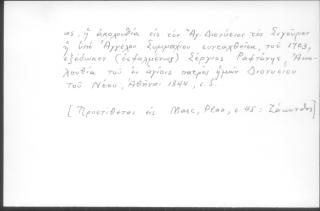 ως, ἡ ἀκολουθία εἰς τὸν Ἅγ. Διονύσιον τὸν Σιγοῦρον
ἡ ὑπὸ Ἀγγέλου Συμμαχίου συνταχθεῖσα, τοῦ 1703,
ἐξέδωκεν (ἐσφαλμένως) Σέργιος Ραφτάνης, Ἀκο-
λουθία τοῦ ἐν ἁγίοις πατρὸς ἡμῶν Διονυσίου
τοῦ Νέου, Ἀθῆναι 1844, σ. 5
[Προστίθεται εἰς Μαρς, Plan, σ. 45: Ζάκυνθος]